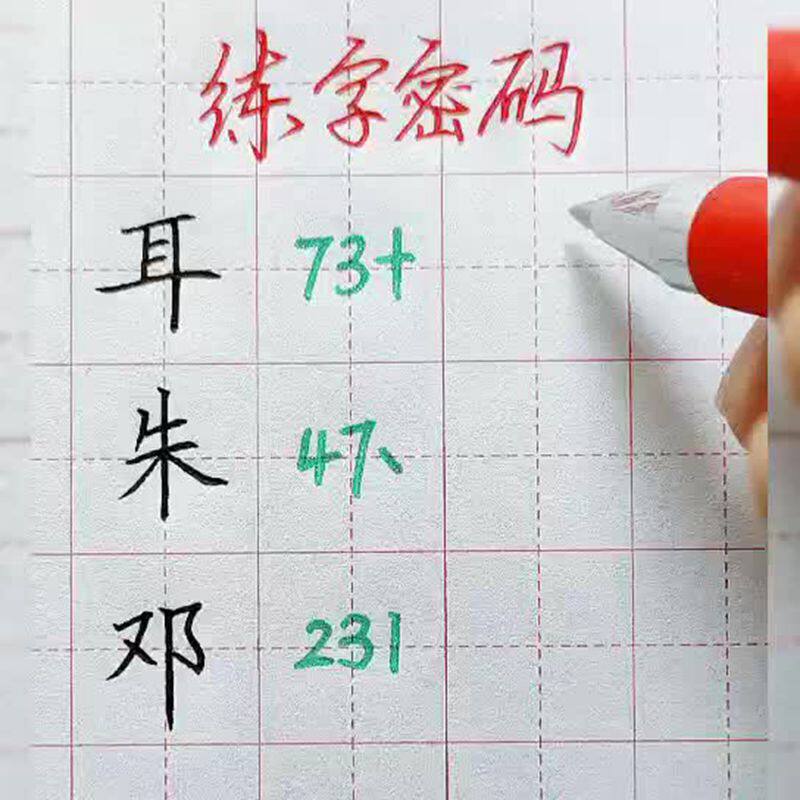 练字密码
耳 73+
朱 47丶
邓 231